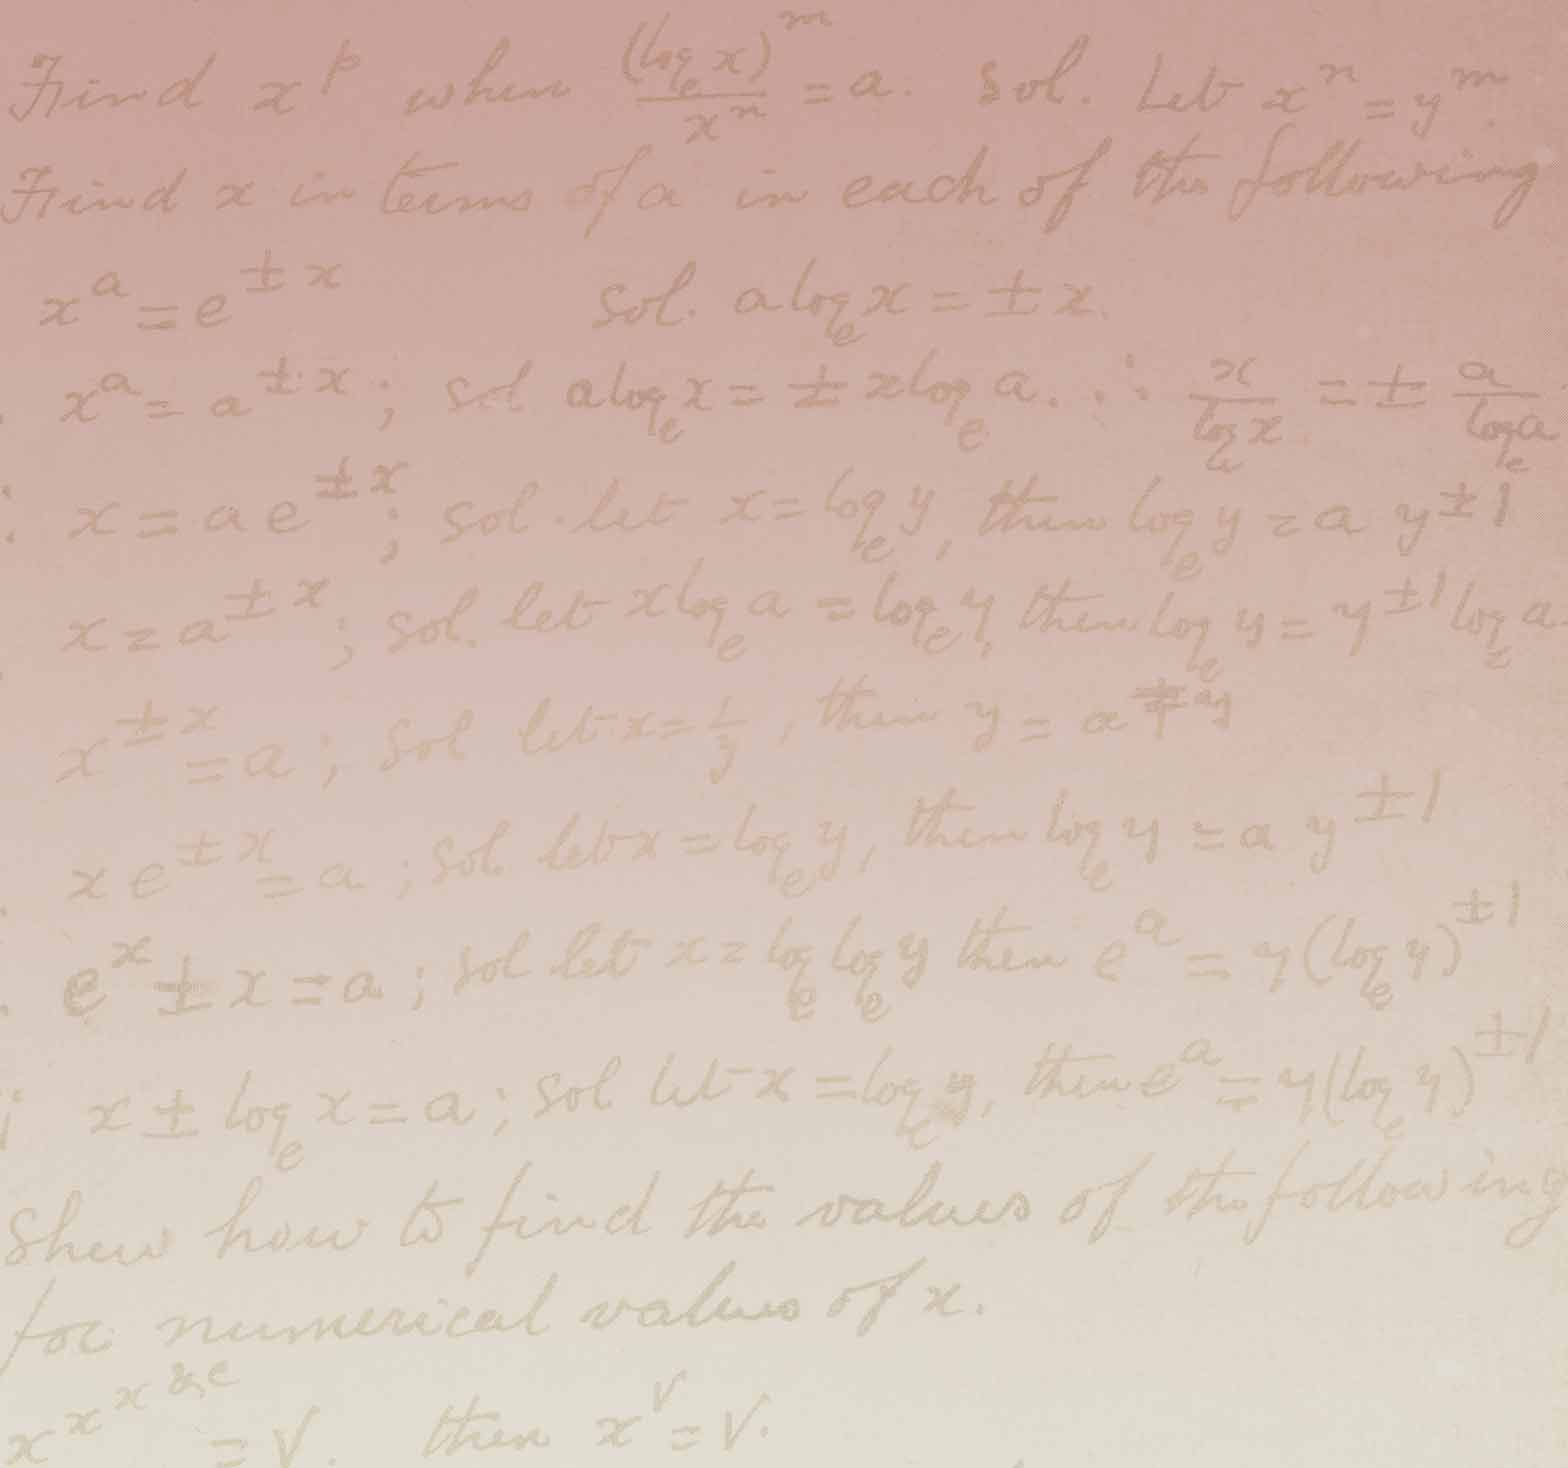 Find x^p when (log_e x)^m / x^n = a. Sol. Let x^n = y^m.
Find x in terms of a in each of the following
x^a = e^{±x} Sol. a log_e x = ± x.
x^a = a^{±x}; sol a log_e x = ± x log_e a. ∴ x / log_e x = ± a / log_e a
x = a e^{±x}; sol. let x = log_e y, then log_e y = a y^{±1}
x = a^{±x}; sol. let x log_e a = log_e y, then log_e y = y^{±1} log_e a.
x^{±x} = a; sol let x = 1/y, then y = a^{∓y}
x e^{±x} = a; sol let x = log_e y, then log_e y = a y^{±1}
e^x ± x = a; sol let x = log_e log_e y then e^a = y (log_e y)^{±1}
x ± log_e x = a; sol let x = log_e y, then e^a = y (log_e y)^{±1}
Shew how to find the values of the following
for numerical values of x.
x^{x^{x^{&c}}} = V. then x^V = V.